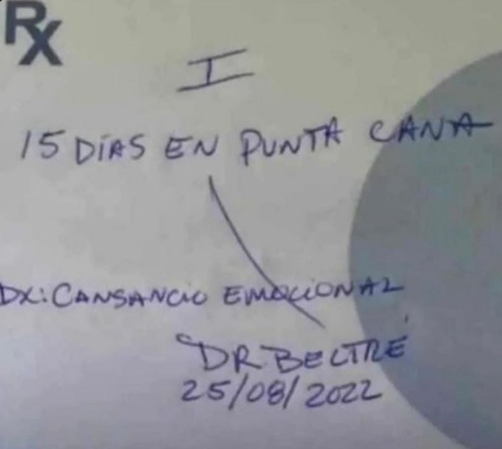 Rx
I
15 DÍAS EN PUNTA CANA
DX: CANSANCIO EMOCIONAL
DR BELTRÉ
25/08/2022